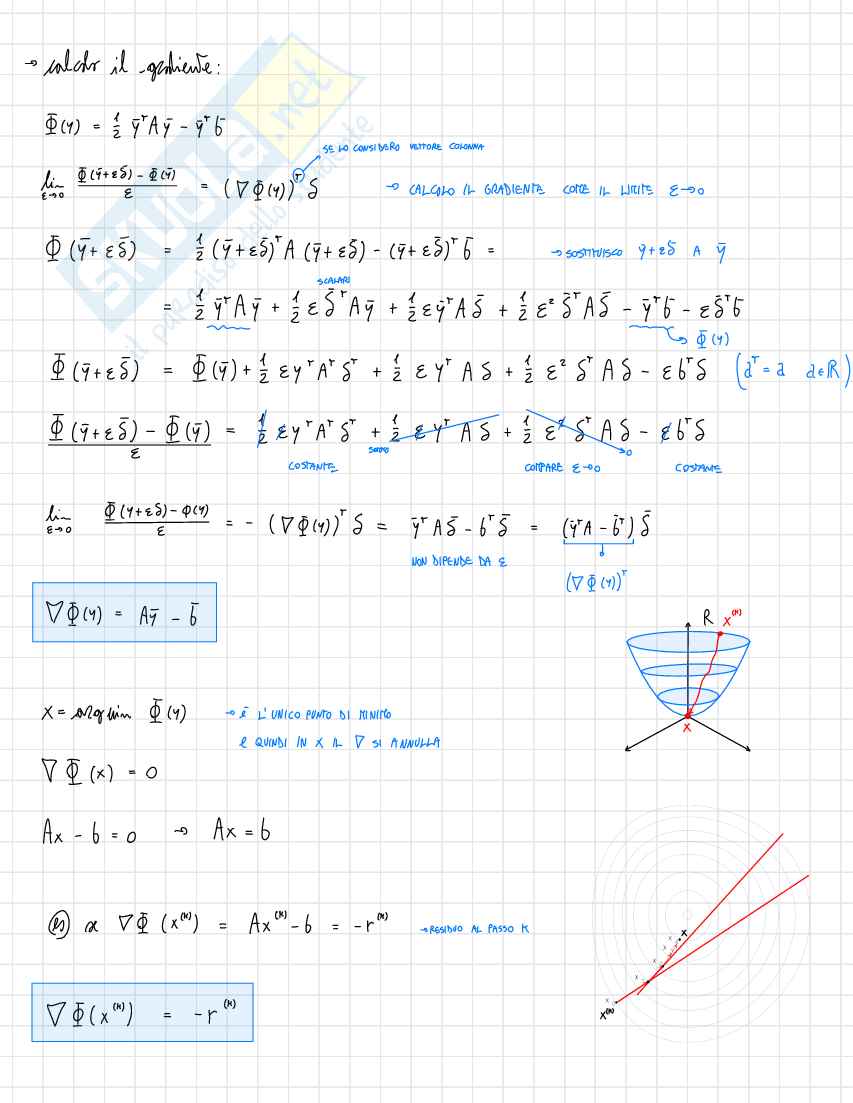 → calcolo il gradiente:
Φ(y) = 1/2 ȳᵀAȳ - ȳᵀb̄
SE LO CONSIDERO VETTORE COLONNA
lim ε→0 (Φ(ȳ+εδ̄) - Φ(ȳ))/ε = (∇Φ(y))ᵀ δ → CALCOLO IL GRADIENTE COME IL LIMITE ε→0
Φ(ȳ+εδ̄) = 1/2 (ȳ+εδ̄)ᵀA(ȳ+εδ̄) - (ȳ+εδ̄)ᵀb̄ = → SOSTITUISCO ȳ+εδ̄ A ȳ
SCALARI
= 1/2 ȳᵀAȳ + 1/2 ε δ̄ᵀAȳ + 1/2 ε ȳᵀAδ̄ + 1/2 ε² δ̄ᵀAδ̄ - ȳᵀb̄ - εδ̄ᵀb̄
Φ(y)
Φ(ȳ+εδ̄) = Φ(ȳ) + 1/2 εyᵀAᵀδᵀ + 1/2 ε yᵀ A δ + 1/2 ε² δᵀ A δ - εbᵀδ (aᵀ = a a∈ℝ)
(Φ(ȳ+εδ̄) - Φ(ȳ))/ε = 1/2 εyᵀAᵀδᵀ + 1/2 ε yᵀ A δ + 1/2 ε² δᵀ A δ - εbᵀδ
0
COSTANTE COMPARE ε→0 COSTANTE
lim ε→0 (Φ(y+εδ) - Φ(y))/ε = - (∇Φ(y))ᵀ δ = ȳᵀAδ̄ - bᵀδ̄ = (ȳᵀA - b̄ᵀ) δ̄
NON DIPENDE DA ε
(∇Φ(y))ᵀ
∇Φ(y) = Aȳ - b̄
R x⁽ᵏ⁾
x
x = argmin Φ(y) → È L'UNICO PUNTO DI MINIMO
E QUINDI IN X IL ∇ SI ANNULLA
∇Φ(x) = 0
Ax - b = 0 → Ax = b
x
x⁽ᵏ⁾
es ∇Φ(x⁽ᵏ⁾) = Ax⁽ᵏ⁾ - b = -r⁽ᵏ⁾ → RESIDUO AL PASSO K
∇Φ(x⁽ᵏ⁾) = -r⁽ᵏ⁾
SKUOLA.net
il paradiso dello studente